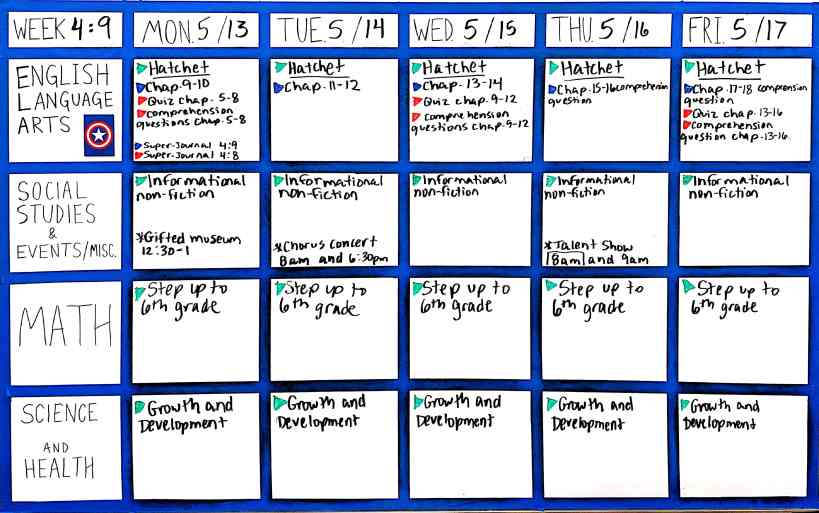 WEEK 4:9
MON. 5/13
TUE. 5/14
WED. 5/15
THU. 5/16
FRI. 5/17
ENGLISH
LANGUAGE
ARTS
Hatchet
Chap. 9-10
Quiz chap. 5-8
comprehension
questions chap. 5-8
Super-Journal 4:9
Super-Journal 4:8
Hatchet
Chap. 11-12
Hatchet
Chap. 13-14
Quiz chap. 9-12
comprehension
questions chap. 9-12
Hatchet
Chap. 15-16 comprehension
question
Hatchet
Chap. 17-18 comprension
question
Quiz chap. 13-16
Comprehension
question chap. 13-16
SOCIAL
STUDIES
&
EVENTS/MISC.
Informational
non-fiction
*Gifted museum
12:30-1
Informational
non-fiction
*Chorus concert
8am and 6:30pm
Informational
non-fiction
Informational
non-fiction
*Talent Show
8am and 9am
Informational
non-fiction
MATH
Step up to
6th grade
Step up to
6th grade
Step up to
6th grade
Step up to
6th grade
Step up to
6th grade
SCIENCE
AND
HEALTH
Growth and
Development
Growth and
Development
Growth and
Development
Growth and
Development
Growth and
Development